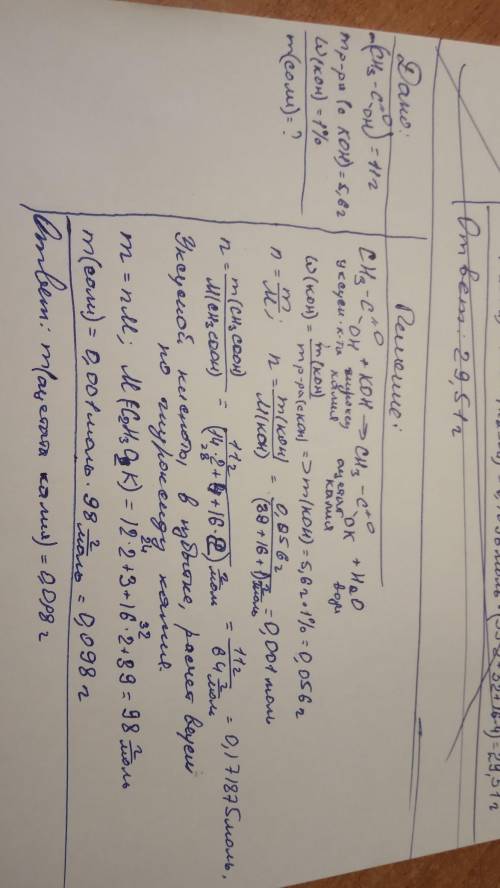 Ответ: 29,51г
Дано:
m(CH3-C=O-OH) = 11г
mр-ра (с KOH) = 5,6г
W(KOH) = 1%
m(соли) = ?
Решение:
CH3-C=O-OH + KOH → CH3-C=O-OK + H2O
уксусн. к-та гидроксид калия ацетат калия вода
W(KOH) = m(KOH)/mр-ра(с KOH) => m(KOH) = 5,6г * 1% = 0,056г
n = m/M; n = m(KOH)/M(KOH) = 0,056г/(39+16+1)г/моль = 0,001 моль
n = m(CH3COOH)/M(CH3COOH) = 11г / г/моль = 11г/64 г/моль = 0,171875 моль,
Уксусной кислоты, в избытке, расчет ведем
по гидроксиду калия.
m = nM; M(C2H3O2K) = 12·2+3+16·2+39 = 98 г/моль
24 32
m(соли) = 0,001 моль · 98 г/моль = 0,098 г
Ответ: m(ацетата калия) = 0,098 г